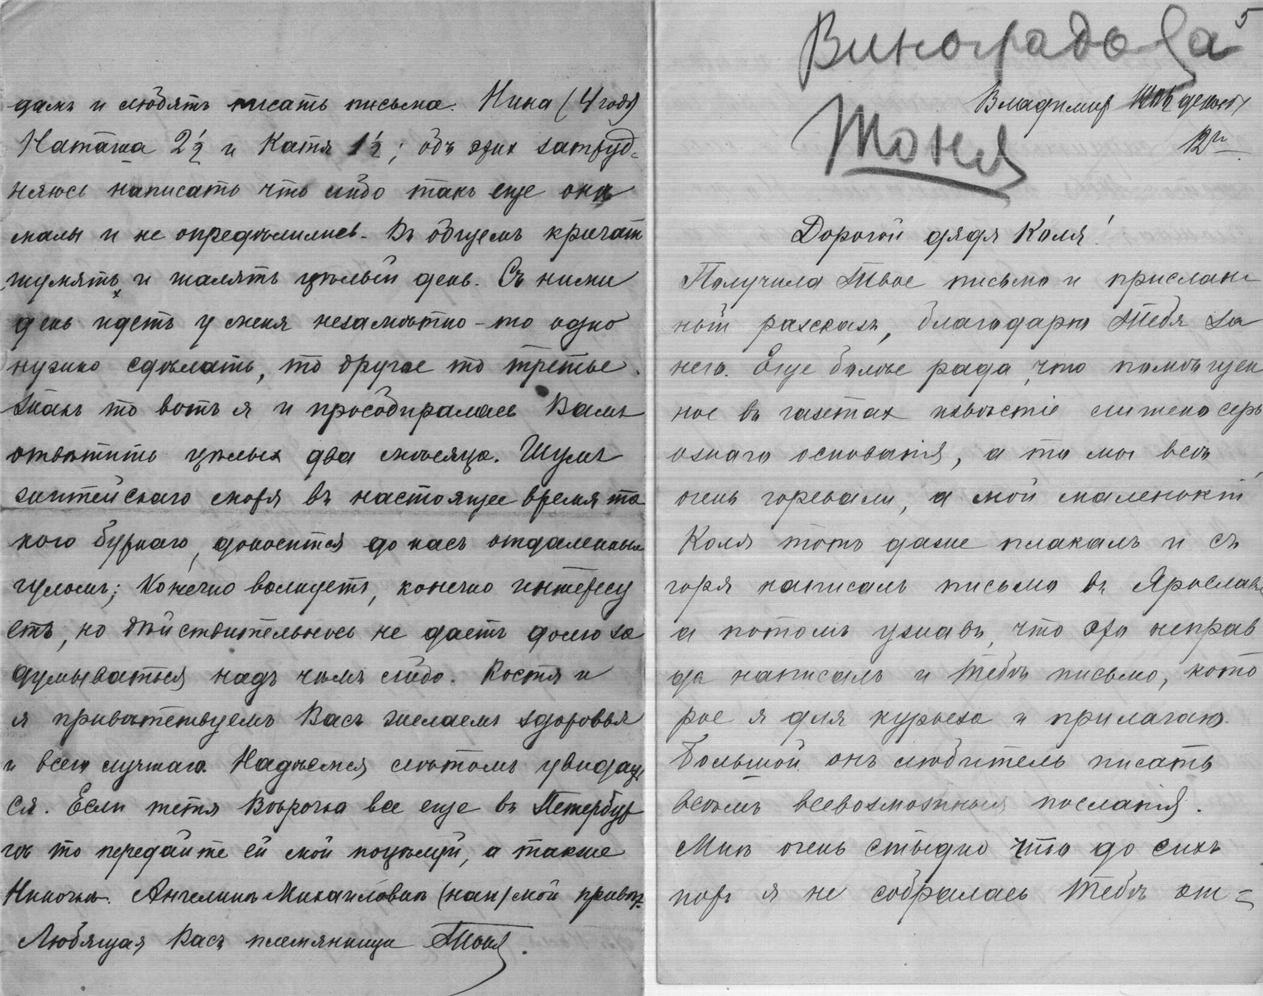 дамъ и любятъ писать письма. Нина (4 года)
Наташа 2½ и Катя 1½; объ этих затруд-
няюсь написать что либо такъ еще они
малы и не опредѣлились. Въ общемъ кричатъ
шумятъ и шалятъ цѣлый день. Съ ними
день идетъ у меня незамѣтно – то одно
нужно сдѣлать, то другое то третье.
Такъ то вотъ я и прособиралась Вамъ
отвѣтить цѣлых два мѣсяца. Шумъ
житейскаго моря въ настоящее время та
кого бурнаго, доносится до насъ отдаленным
гуломъ; конечно волнуетъ, конечно интересу
етъ, но дѣйствительность не даетъ долго за
думываться надъ чѣмъ либо. Костя и
я привѣтствуемъ Васъ желаемъ здоровья
и всего лучшаго. Надѣемся лѣтомъ увидать
ся. Если тетя Вѣрочка все еще въ Петербур
гѣ то передайте ей мой поцѣлуй, а также
Ниночкѣ. Ангелинѣ Михаиловнѣ мой привѣт.
Любящая Васъ племянница Тоня.
Виноградова 5
Тоня
Владимир
12го
Дорогой дядя Коля!
Получила Твое письмо и прислан
ный разсказъ, благодарю Тебя за
него. Еще болѣе рада, что помѣщен
ное въ газетах извѣстіе лишено серь
ознаго основанія, а то мы всѣ
очень горевали, а мой маленькій
Коля тотъ даже плакалъ и съ
горя написалъ письмо въ Ярославль
а потомъ узнавъ, что это неправ
да написалъ и Тебѣ письмо, кото
рое я для курьеза и прилагаю.
Большой онъ любитель писать
всѣмъ всевозможныя посланія.
Мнѣ очень стыдно что до сихъ
поръ я не собралась Тебѣ от=